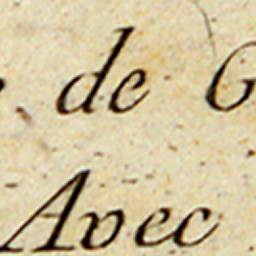 de G
Avec